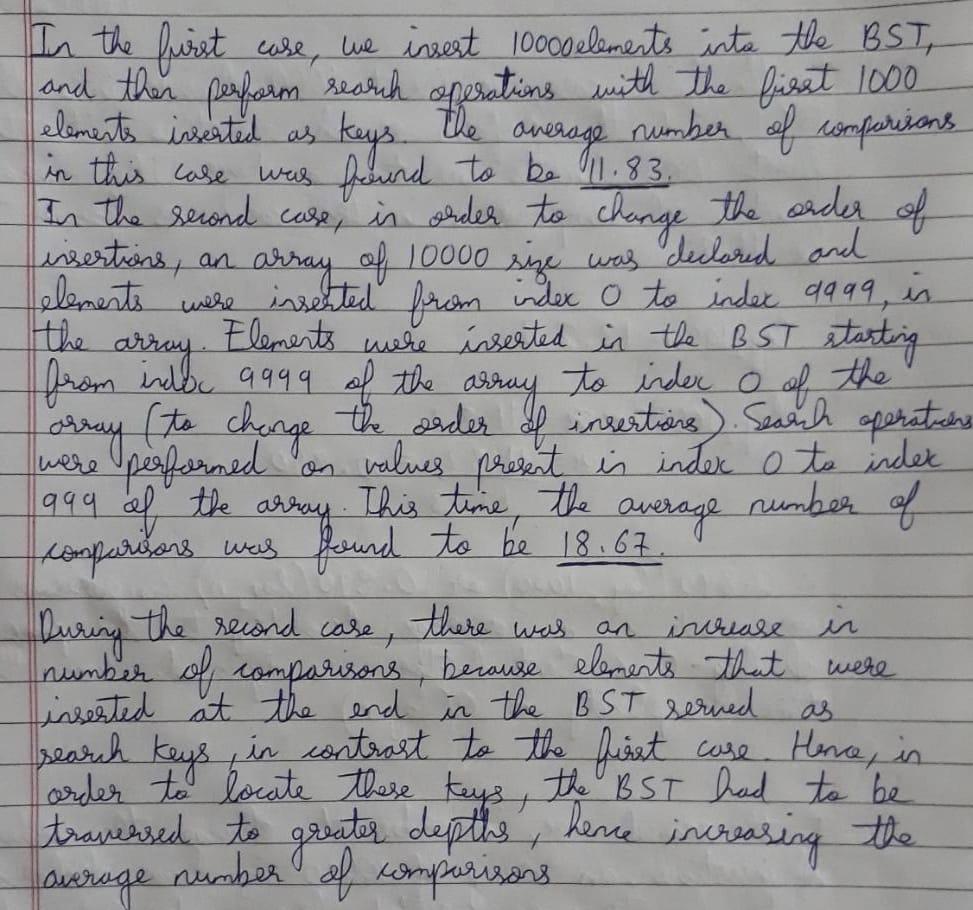 In the first case, we insert 10000 elements into the BST,
and then perform search operations with the first 1000
elements inserted as keys. The average number of comparisons
in this case was found to be 11.83.
In the second case, in order to change the order of
insertions, an array of 10000 size was declared and
elements were inserted from index 0 to index 9999, in
the array. Elements were inserted in the BST starting
from index 9999 of the array to index 0 of the
array (to change the order of insertions). Search operations
were performed on values present in index 0 to index
999 of the array. This time, the average number of
comparisons was found to be 18.67.
During the second case, there was an increase in
number of comparisons, because elements that were
inserted at the end in the BST served as
search keys, in contrast to the first case. Hence, in
order to locate these keys, the BST had to be
traversed to greater depths, hence increasing the
average number of comparisons